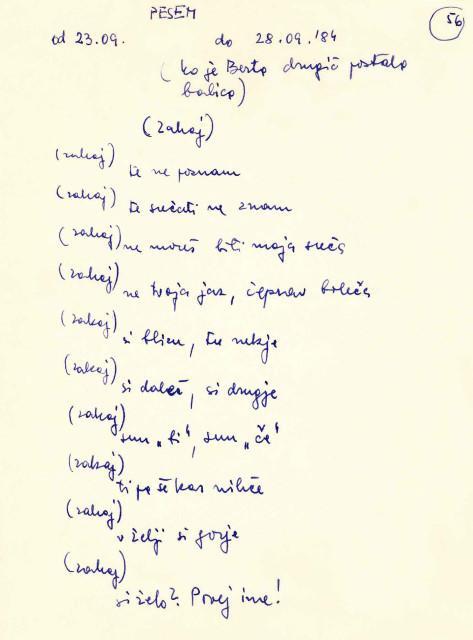 PESEM
56
od 23.09. do 28.09.'84
(ko je Berta drugič postala
babica)
(zakaj)
(zakaj) te ne poznam
(zakaj) te srečati ne znam
(zakaj) ne moreš biti moja sreča
(zakaj) ne tvoja jaz, čeprav boleča
(zakaj) si blizu, tu nekje
(zakaj) si daleč, si drugje
(zakaj) sem „ti“, sem „če“
(zakaj) ti pa še kar nihče
(zakaj) v želji si gorje
(zakaj) si želo? Povej ime!